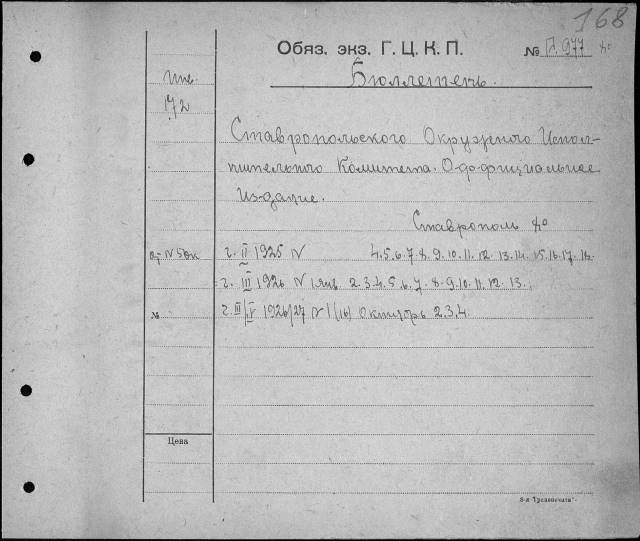 168
Обяз. экз. Г. Ц. К. П. № П.977
Бюллетень.
Инв.
172
Ставропольского Окружного Испол-
нительного Комитета. Официальное
издание.
Ставрополь
г. II 1925 N 4.5.6.7.8.9.10.11.12.13.14.15.16.17.18.
г. III 1926 N 1 янв. 2.3.4.5.6.7.8.9.10.11.12.13.
№ г. III/IV 1926/27 N 1(16) Октябрь 2.3.4.
Цена